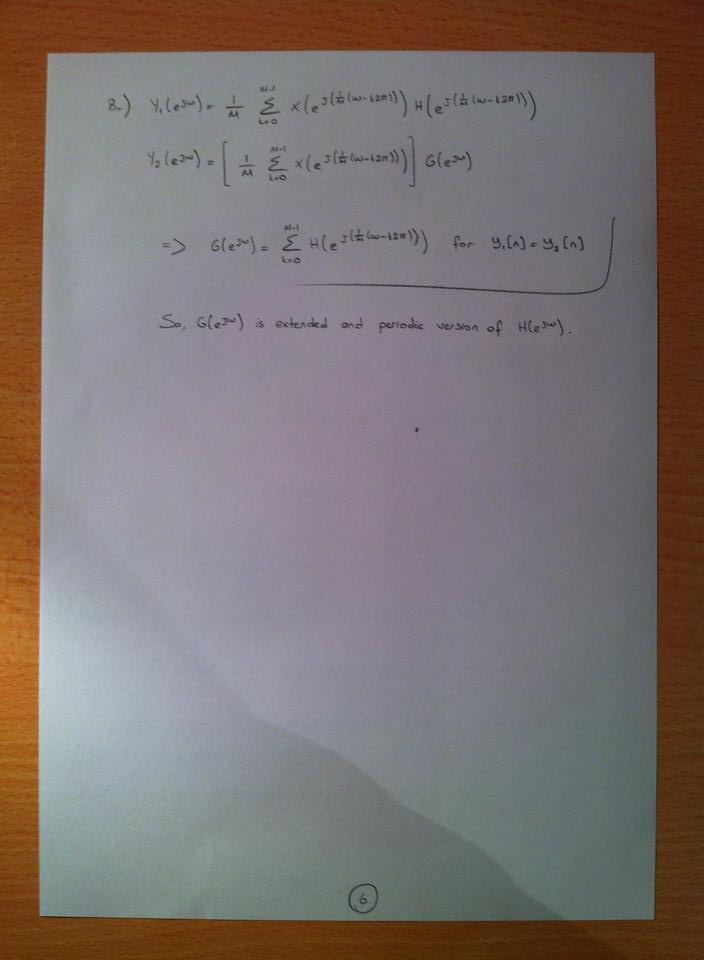 8.) Y₁(e^{jω}) = \frac{1}{M} \sum_{k=0}^{M-1} X(e^{j(\frac{1}{M}(ω-k2π))}) H(e^{j(\frac{1}{M}(ω-k2π))})
Y₂(e^{jω}) = [\frac{1}{M} \sum_{k=0}^{M-1} X(e^{j(\frac{1}{M}(ω-k2π))})] G(e^{jω})
=> G(e^{jω}) = \sum_{k=0}^{M-1} H(e^{j(\frac{1}{M}(ω-k2π))}) for y₁[n] = y₂[n]
So, G(e^{jω}) is extended and periodic version of H(e^{jω}).
6